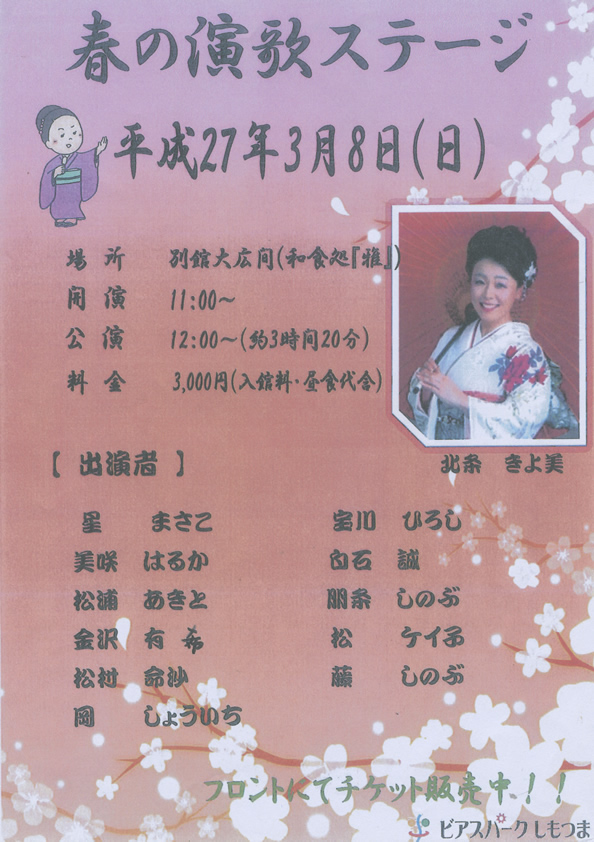 春の演歌ステージ
平成27年3月8日(日)
場所 別館大広間(和食処『雅』)
開演 11:00～
公演 12:00～(約3時間20分)
料金 3,000円(入館料・昼食代含)
北条 きよ美
【 出演者 】
星 まさこ 宝川 ひろし
美咲 はるか 白石 誠
松浦 あきと 朋条 しのぶ
金沢 有希 松 ケイ子
松村 命沙 藤 しのぶ
岡 しょういち
フロントにてチケット販売中!!
ビアスパークしもつま